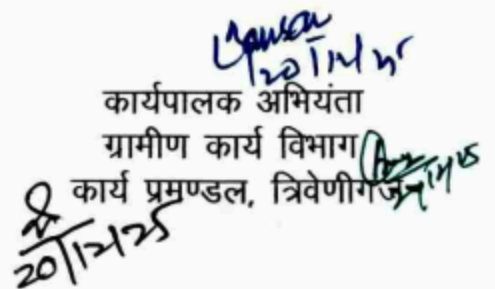 20/12/25
कार्यपालक अभियंता
ग्रामीण कार्य विभाग
कार्य प्रमण्डल, त्रिवेणीगंज
20/12/25